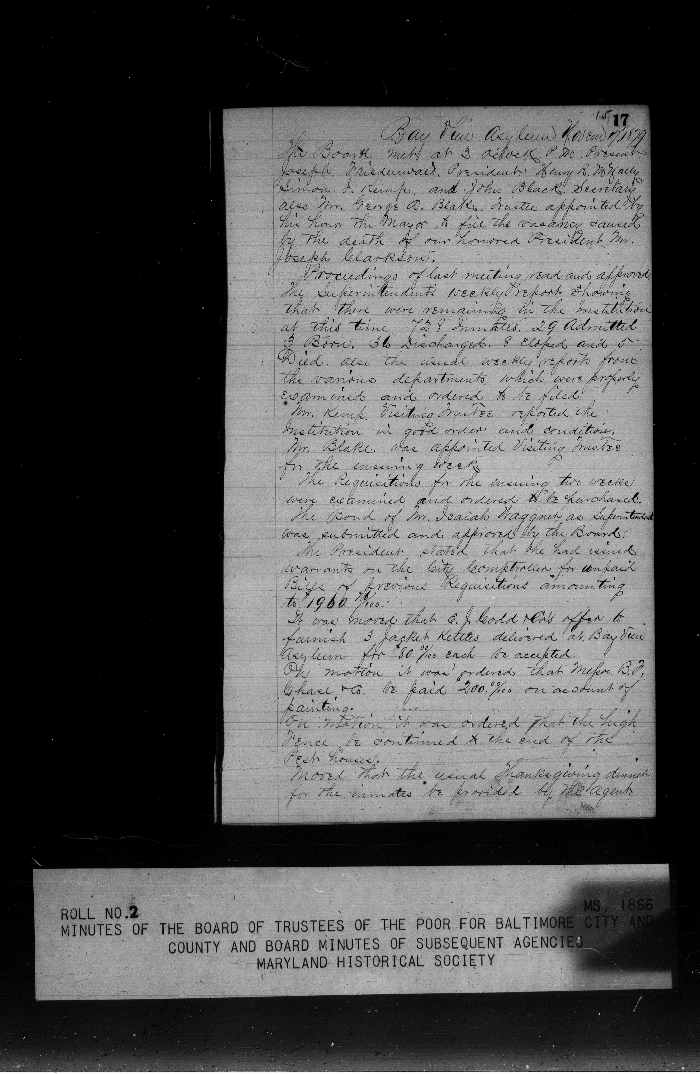 15 17
Bay View Asylum Novem 1879
The Board met at 3 oclock P.M. Present
Joseph Friedenwald, President Henry A. McNally
Simon J. Kemp, and John Black, Secretary
also Mr. George A. Blake. Trustee appointed by
his honor the Mayor to fill the vacancy caused
by the death of our honored President Mr.
Joseph Clarkson.
Proceedings of last meeting read and approved
The Superintendents weekly report showing
that there were remaining in the Institution
at this time Inmates. 29 Admitted
3 Born. 36 Discharged. 8 eloped and 5
Died. also the usual weekly reports from
the various departments which were properly
examined and ordered to be filed.
Mr. Kemp Visiting Trustee reported the
Institution in good order and condition.
Mr. Blake was appointed Visiting Trustee
for the ensuing week
The Requisitions for the ensuing two weeks
were examined and ordered to be purchased.
The Bond of Mr. Isaiah Waggner as Superintendent
was submitted and approved by the Board.
The President stated that he had issued
warrants on the City Comptroller for unpaid
Bills of previous Requisitions amounting
to 1960
It was moved that C. J. Codd & Co's offer to
furnish 3 Jacket Kettles delivered at Bay View
Asylum for $80 00/100 each be accepted
On motion it was ordered that Messrs. B. F.
Chase & Co. be paid 200.00/100 on account of
painting.
On motion it was ordered that the high
Fence be continued to the end of the
Pest houses.
Moved that the usual Thanksgiving dinner
for the inmates be provided by the Agent
ROLL NO.2 MS. 1866
MINUTES OF THE BOARD OF TRUSTEES OF THE POOR FOR BALTIMORE CITY AND
COUNTY AND BOARD MINUTES OF SUBSEQUENT AGENCIES
MARYLAND HISTORICAL SOCIETY